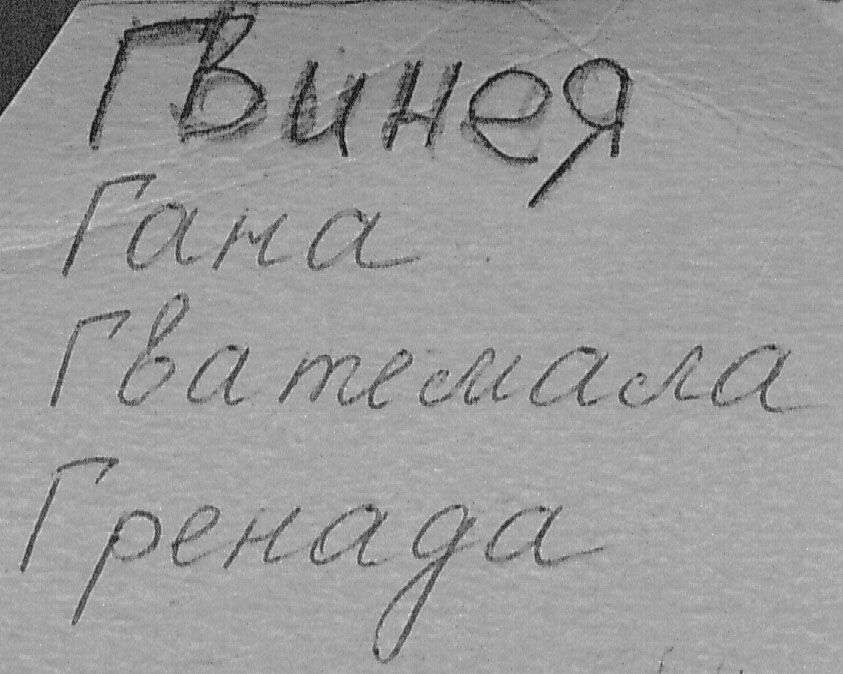 Гвинея
Гана
Гватемала
Гренада